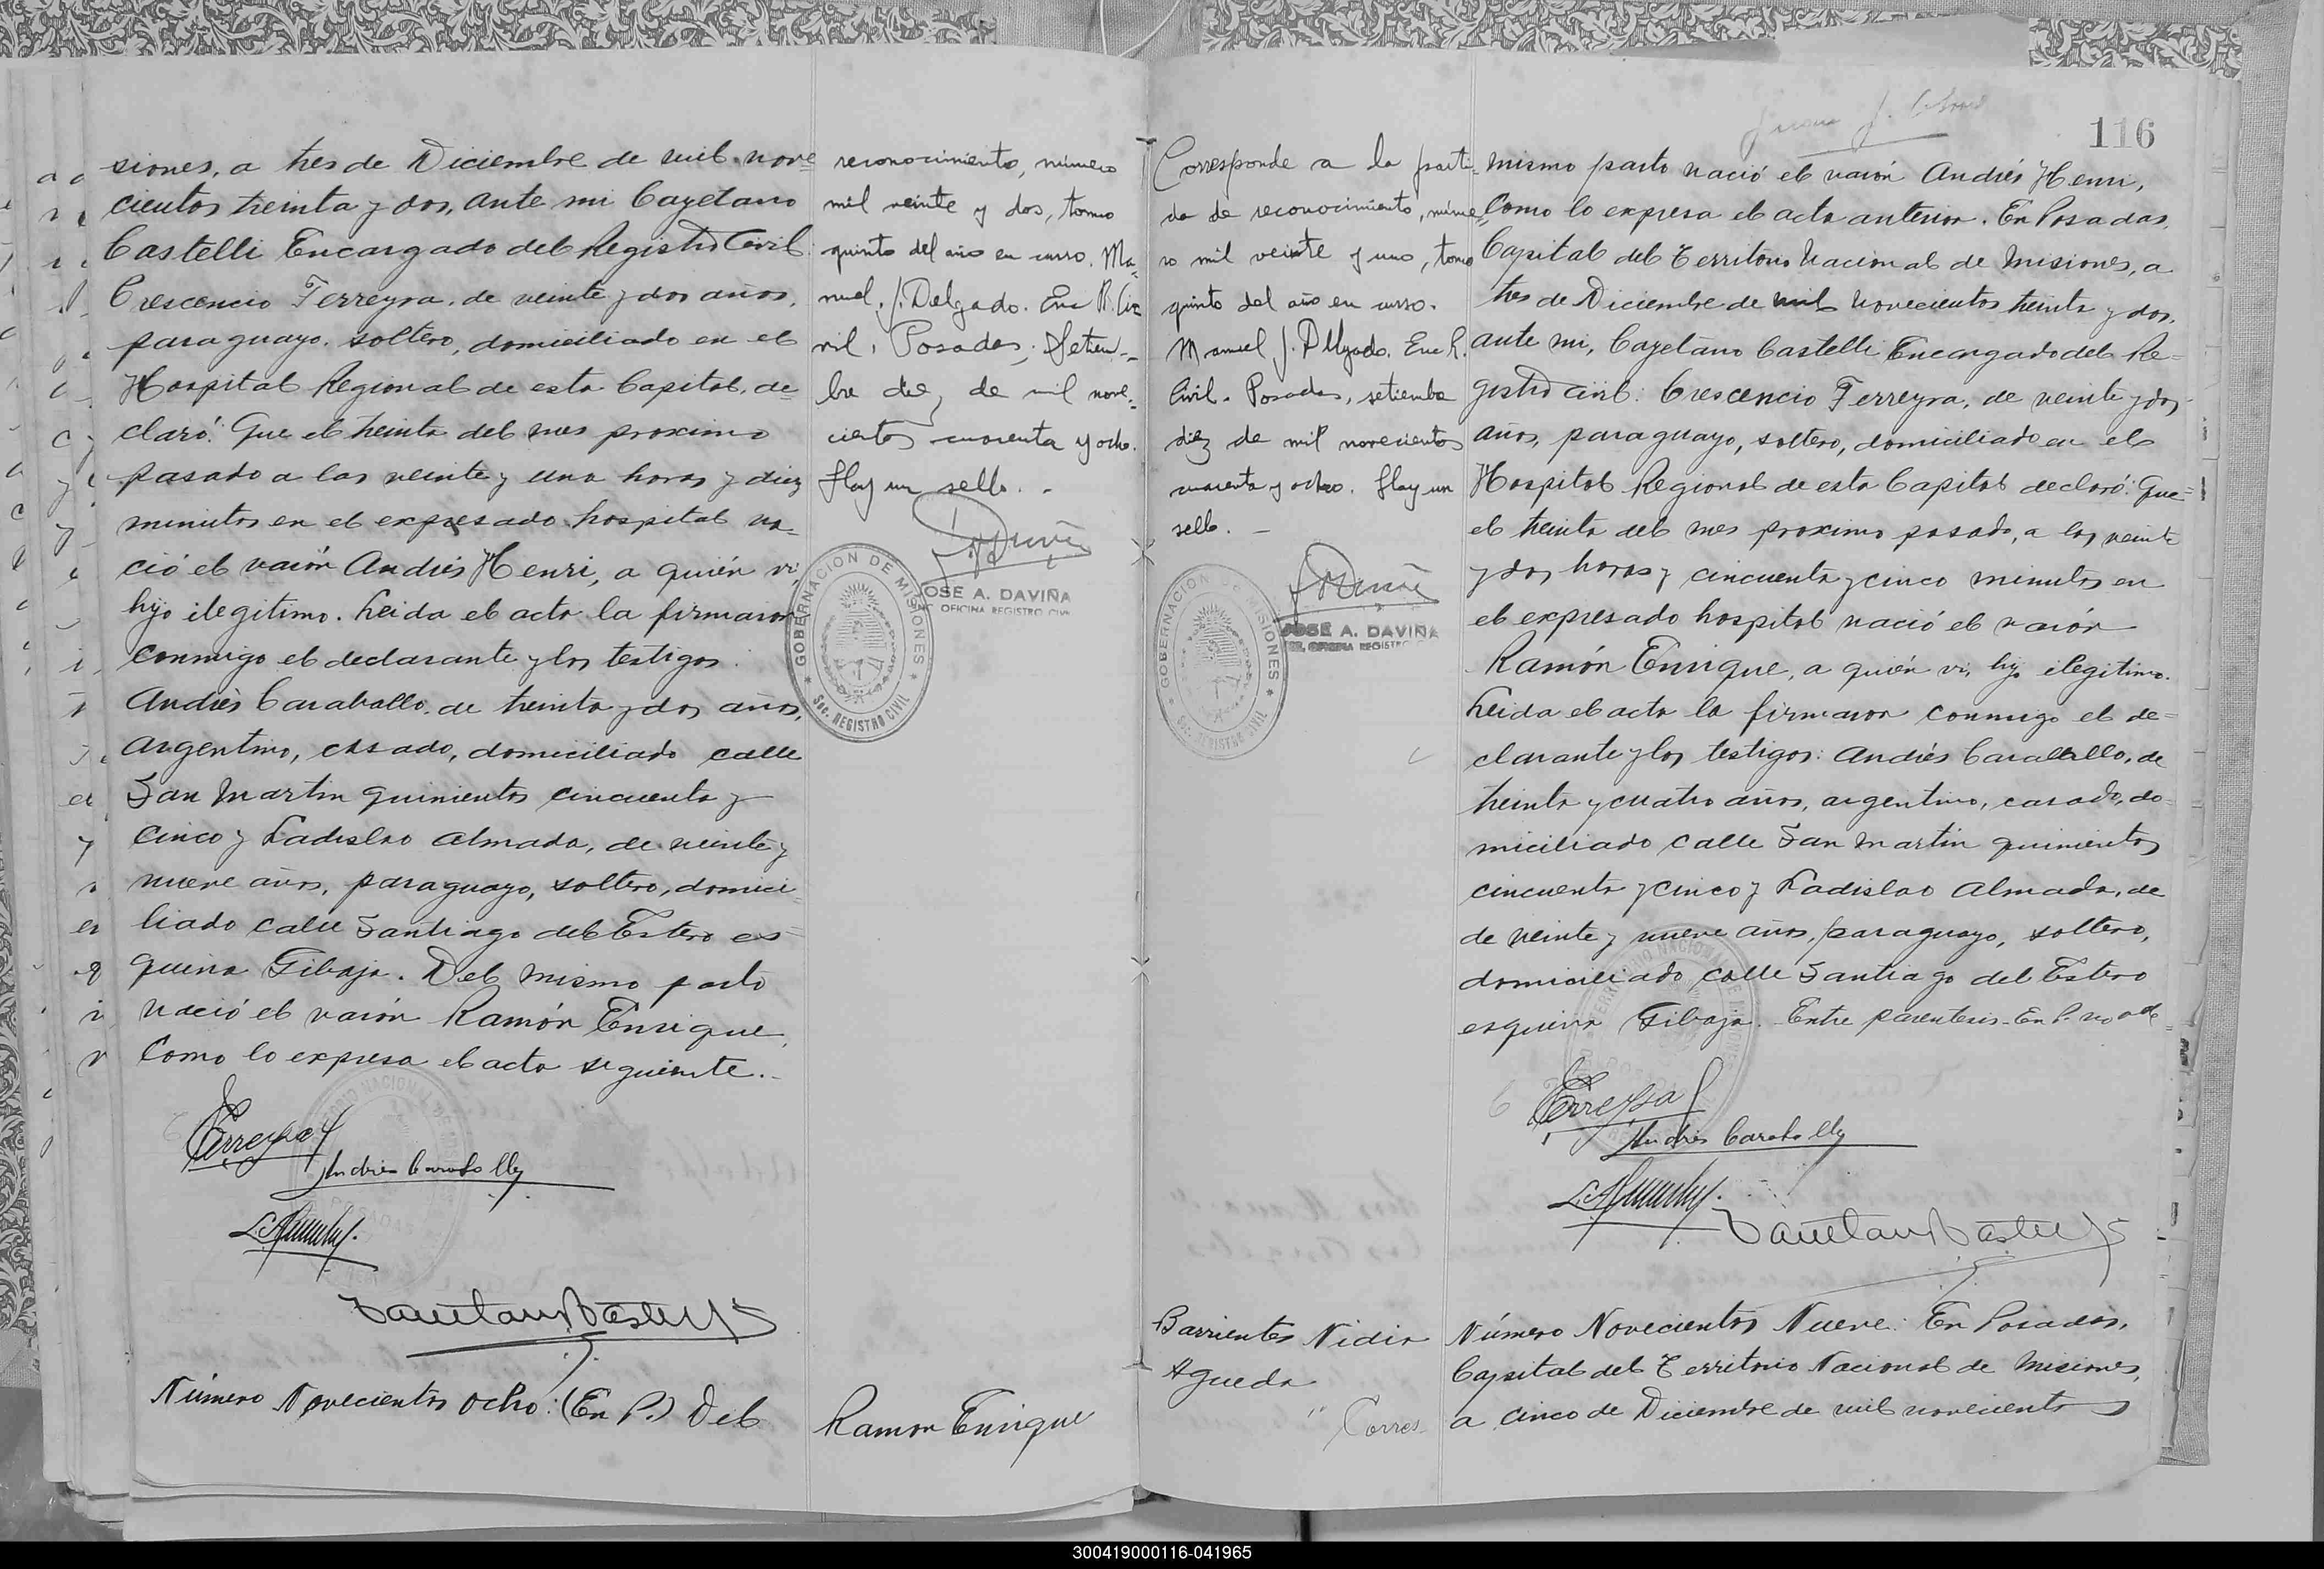 siones, a tres de Diciembre de mil nove
cientos treinta y dos, ante mi Cayetano
Castelli Encargado del Registro Civil:
Crescencio Ferreyra, de veinte y dos años,
paraguayo, soltero, domiciliado en el
Hospital Regional de esta Capital, de-
claró: Que el treinta del mes proximo
pasado a las veinte y una horas y diez
minutos en el expresado hospital na-
ció el varón Andrés Henri, a quién vi,
hijo ilegitimo. Leida el acta la firmaron
conmigo el declarante y los testigos:
Andrés Caraballo, de treinta y dos años,
argentino, casado, domiciliado calle
San Martin quinientos cincuenta y
cinco y Ladislao Almada, de veinte y
nueve años, paraguayo, soltero, domici-
liado calle Santiago del Estero es-
quina Gibaja. Del mismo parto
nació el varón Ramón Enrique,
como lo expresa el acta siguiente.-
Ferreyra
Andrés Caraballo
L. Almada
Cayetano Castelli
Número Novecientos ocho: (En P.) Del
reconocimiento, número
mil veinte y dos, tomo
quinto del año en curso. Ma-
nuel J. Delgado. Enc R. Ci-
vil, Posadas, Setiem-
bre diez de mil nove-
cientos cuarenta y ocho.
Hay un sello. -
JOSE A. DAVIÑA
OFICINA REGISTRO CIVIL
GOBERNACION DE MISIONES
SEC. REGISTRO CIVIL
Ramon Enrique
Corresponde a la parti-
da de reconocimiento, núme-
ro mil veinte y uno, tomo
quinto del año en curso.
Manuel J. Delgado. Enc R.
Civil. Posadas, setiembre
diez de mil novecientos
cuarenta y ocho. Hay un
sello. -
JOSE A. DAVIÑA
OFICINA REGISTRO
GOBERNACION DE MISIONES
SEC. REGISTRO CIVIL
Barrientos Nidia
Agueda
" Corres
116
mismo parto nació el varón Andrés Henri,
como lo expresa el acta anterior. En Posadas,
Capital del Territorio Nacional de Misiones, a
tres de Diciembre de mil novecientos treinta y dos,
ante mi, Cayetano Castelli Encargado del Re-
gistro Civil: Crescencio Ferreyra, de veinte y dos
años, paraguayo, soltero, domiciliado en el
Hospital Regional de esta Capital declaró: Que
el treinta del mes proximo pasado, a las veinte
y dos horas y cincuenta y cinco minutos en
el expresado hospital nació el varón
Ramón Enrique, a quién vi, hijo ilegitimo.
Leida el acta la firmaron conmigo el de-
clarante y los testigos: Andrés Caraballo, de
treinta y cuatro años, argentino, casado, do-
miciliado calle San Martin quinientos
cincuenta y cinco y Ladislao Almada, de
de veinte y nueve años, paraguayo, soltero,
domiciliado calle Santiago del Estero
esquina Gibaja. Entre parentesis - En P. no vale
Ferreyra
Andrés Caraballo
L. Almada
Cayetano Castelli
Número Novecientos Nueve: En Posadas,
Capital del Territorio Nacional de Misiones,
a cinco de Diciembre de mil novecientos
300419000116-041965